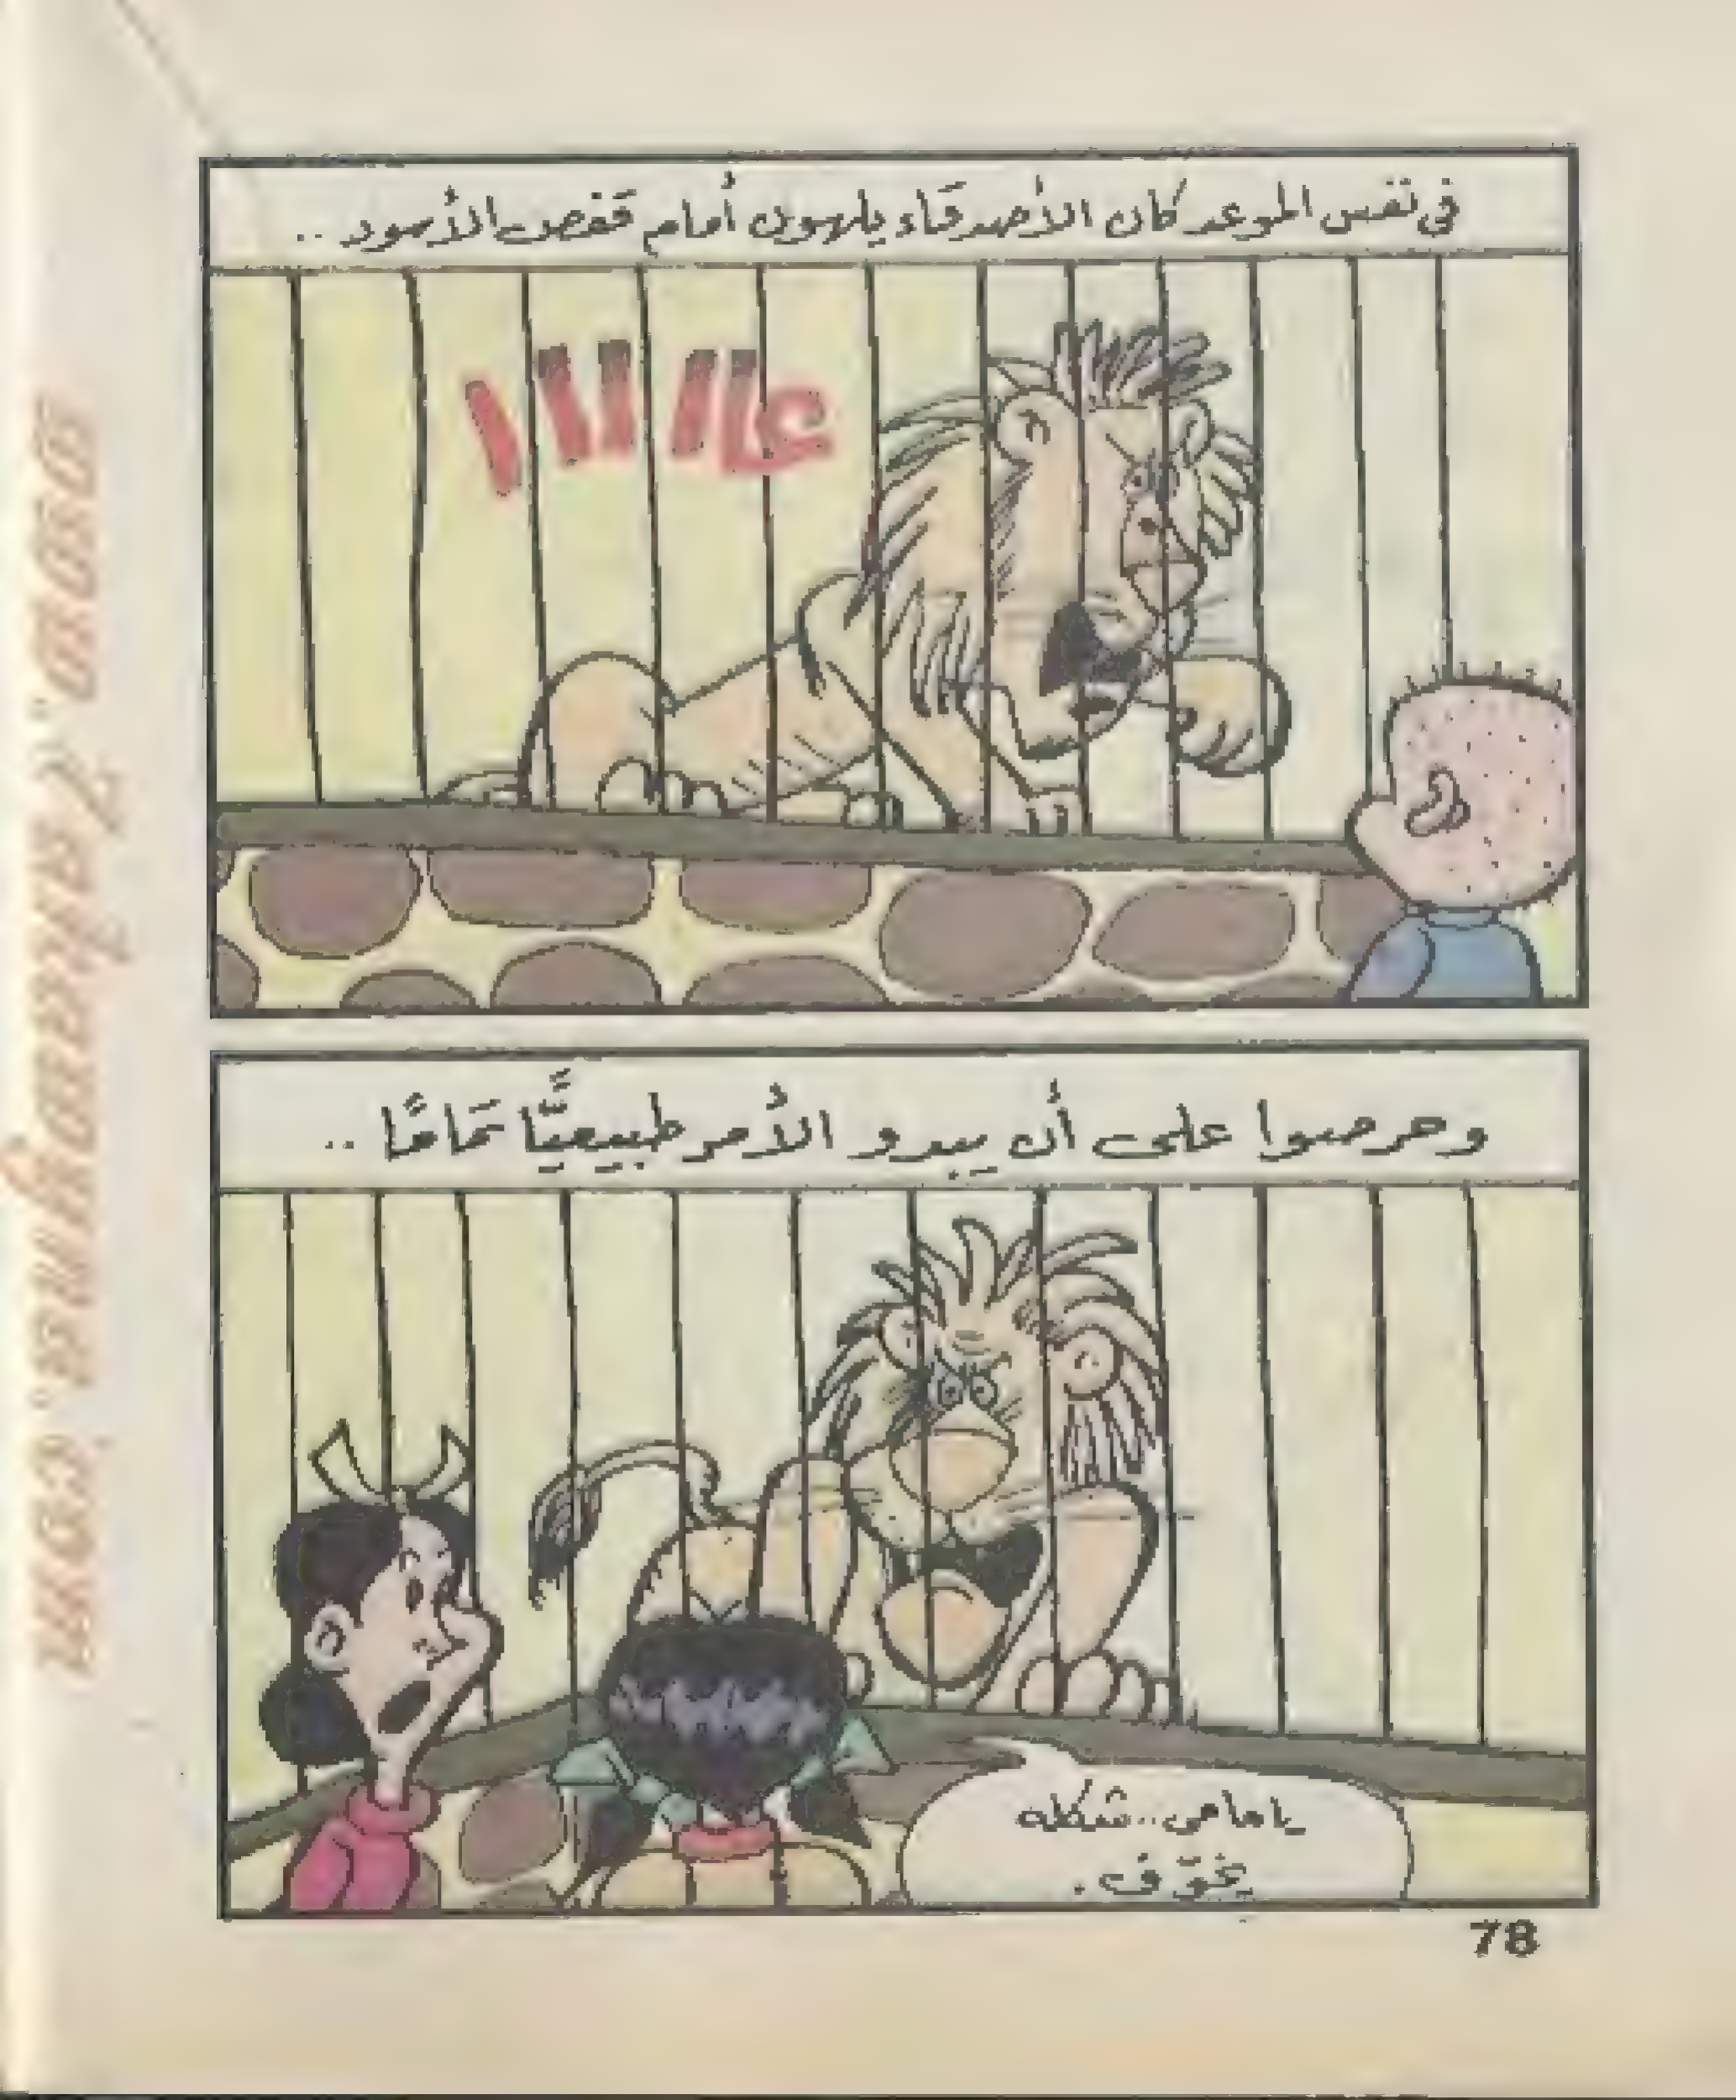 في نفس الموعد كان الأصدقاء يلهون أمام قفص الأسود ..
عاااااا
وحرصوا على أن يبدو الأمر طبيعيًّا تمامًا ..
يا مامى .. شكله
يخوّف .
78
www.7akawyna.com